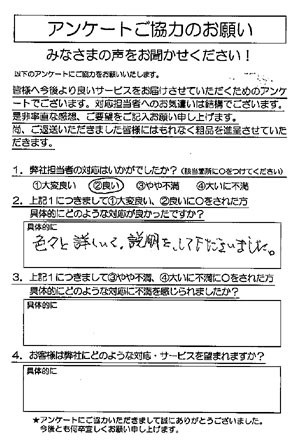 アンケートご協力のお願い
みなさまの声をお聞かせください！
以下のアンケートにご協力をお願いいたします。
皆様へ今後より良いサービスをお届けさせていただくためのアンケ
ートでございます。対応担当者へのお気遣いは結構でございます。
是非率直な感想、ご要望をご記入お願い申し上げます。
尚、ご返送いただきました皆様にはもれなく粗品を進呈させていた
だきます。
1．弊社担当者の対応はいかがでしたか？（該当箇所に○をつけてください）
①大変良い ②良い ③やや不満 ④大いに不満
2．上記1につきまして①大変良い、②良いに○をされた方
具体的にどのような対応が良かったですか？
具体的に
色々と詳しく、説明をして下さいました。
3．上記1につきまして③やや不満、④大いに不満に○をされた方
具体的にどのような対応に不満を感じられましたか？
具体的に
4．お客様は弊社にどのような対応・サービスを望まれますか？
具体的に
★アンケートにご協力いただきまして誠にありがとうございました。
今後とも何卒宜しくお願い申し上げます。